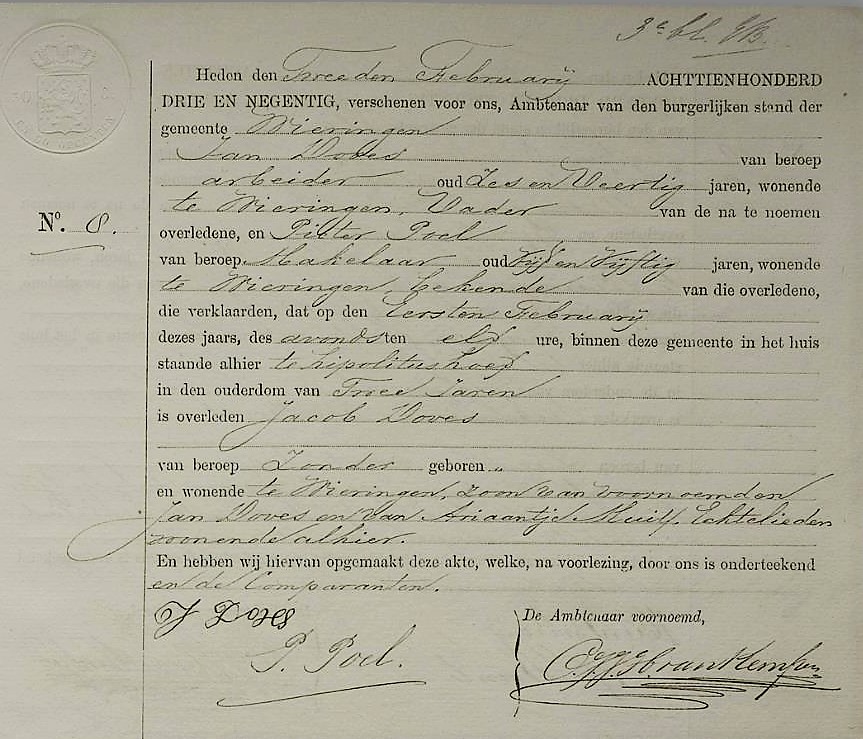 3e bl.
Heden den Tweeden February ACHTTIENHONDERD
DRIE EN NEGENTIG, verschenen voor ons, Ambtenaar van den burgerlijken stand der
gemeente Wieringen
Jan Doves van beroep
arbeider oud Zes en Veertig jaren, wonende
te Wieringen, Vader van de na te noemen
No. 8.
overledene, en Pieter Poel
van beroep Makelaar oud Vijf en Vijftig jaren, wonende
te Wieringen, bekende van die overledene,
die verklaarden, dat op den Eersten February
dezes jaars, des avonds ten elf ure, binnen deze gemeente in het huis
staande alhier te hipolitushoef
in den ouderdom van Twee Jaren
is overleden Jacob Doves
van beroep Zonder geboren „
en wonende te Wieringen, zoon van voornoemden
Jan Doves en van Ariaantje Muilf, Echtelieden
wonende alhier.
En hebben wij hiervan opgemaakt deze akte, welke, na voorlezing, door ons is onderteekend
en de Comparanten.
J Doves
De Ambtenaar voornoemd,
P. Poel.